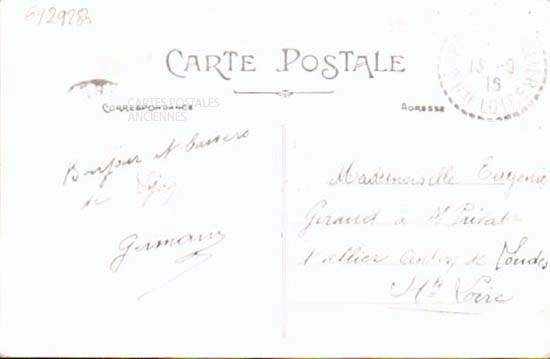 692928
CARTE POSTALE
CORRESPONDANCE
CARTES POSTALES
ANCIENNES
ADRESSE
13
16
LOIRE
Bonjour et baisers
de
Germain
Mademoiselle Eugenie
Geraud à St Privat
l'allier canton de Loudes
Hte Loire